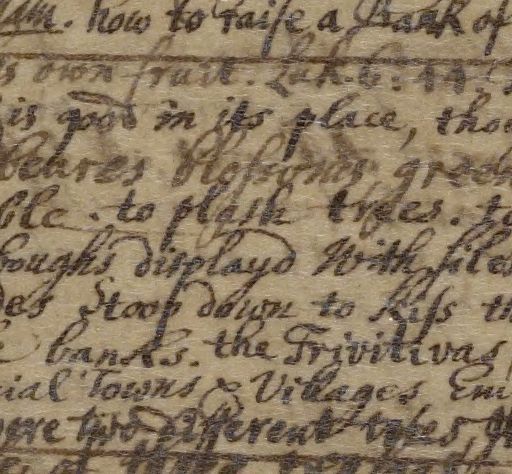 how to raise a Bank of
s own fruit. Luk. 6. 44.
is good in its place, tho
beares blossoms green
ble. to plash trees. to
boughs displayd With silv
des Stoop down to kiss th
banks. the Trivitivas
cial Towns & Villages Em
were two different trees,